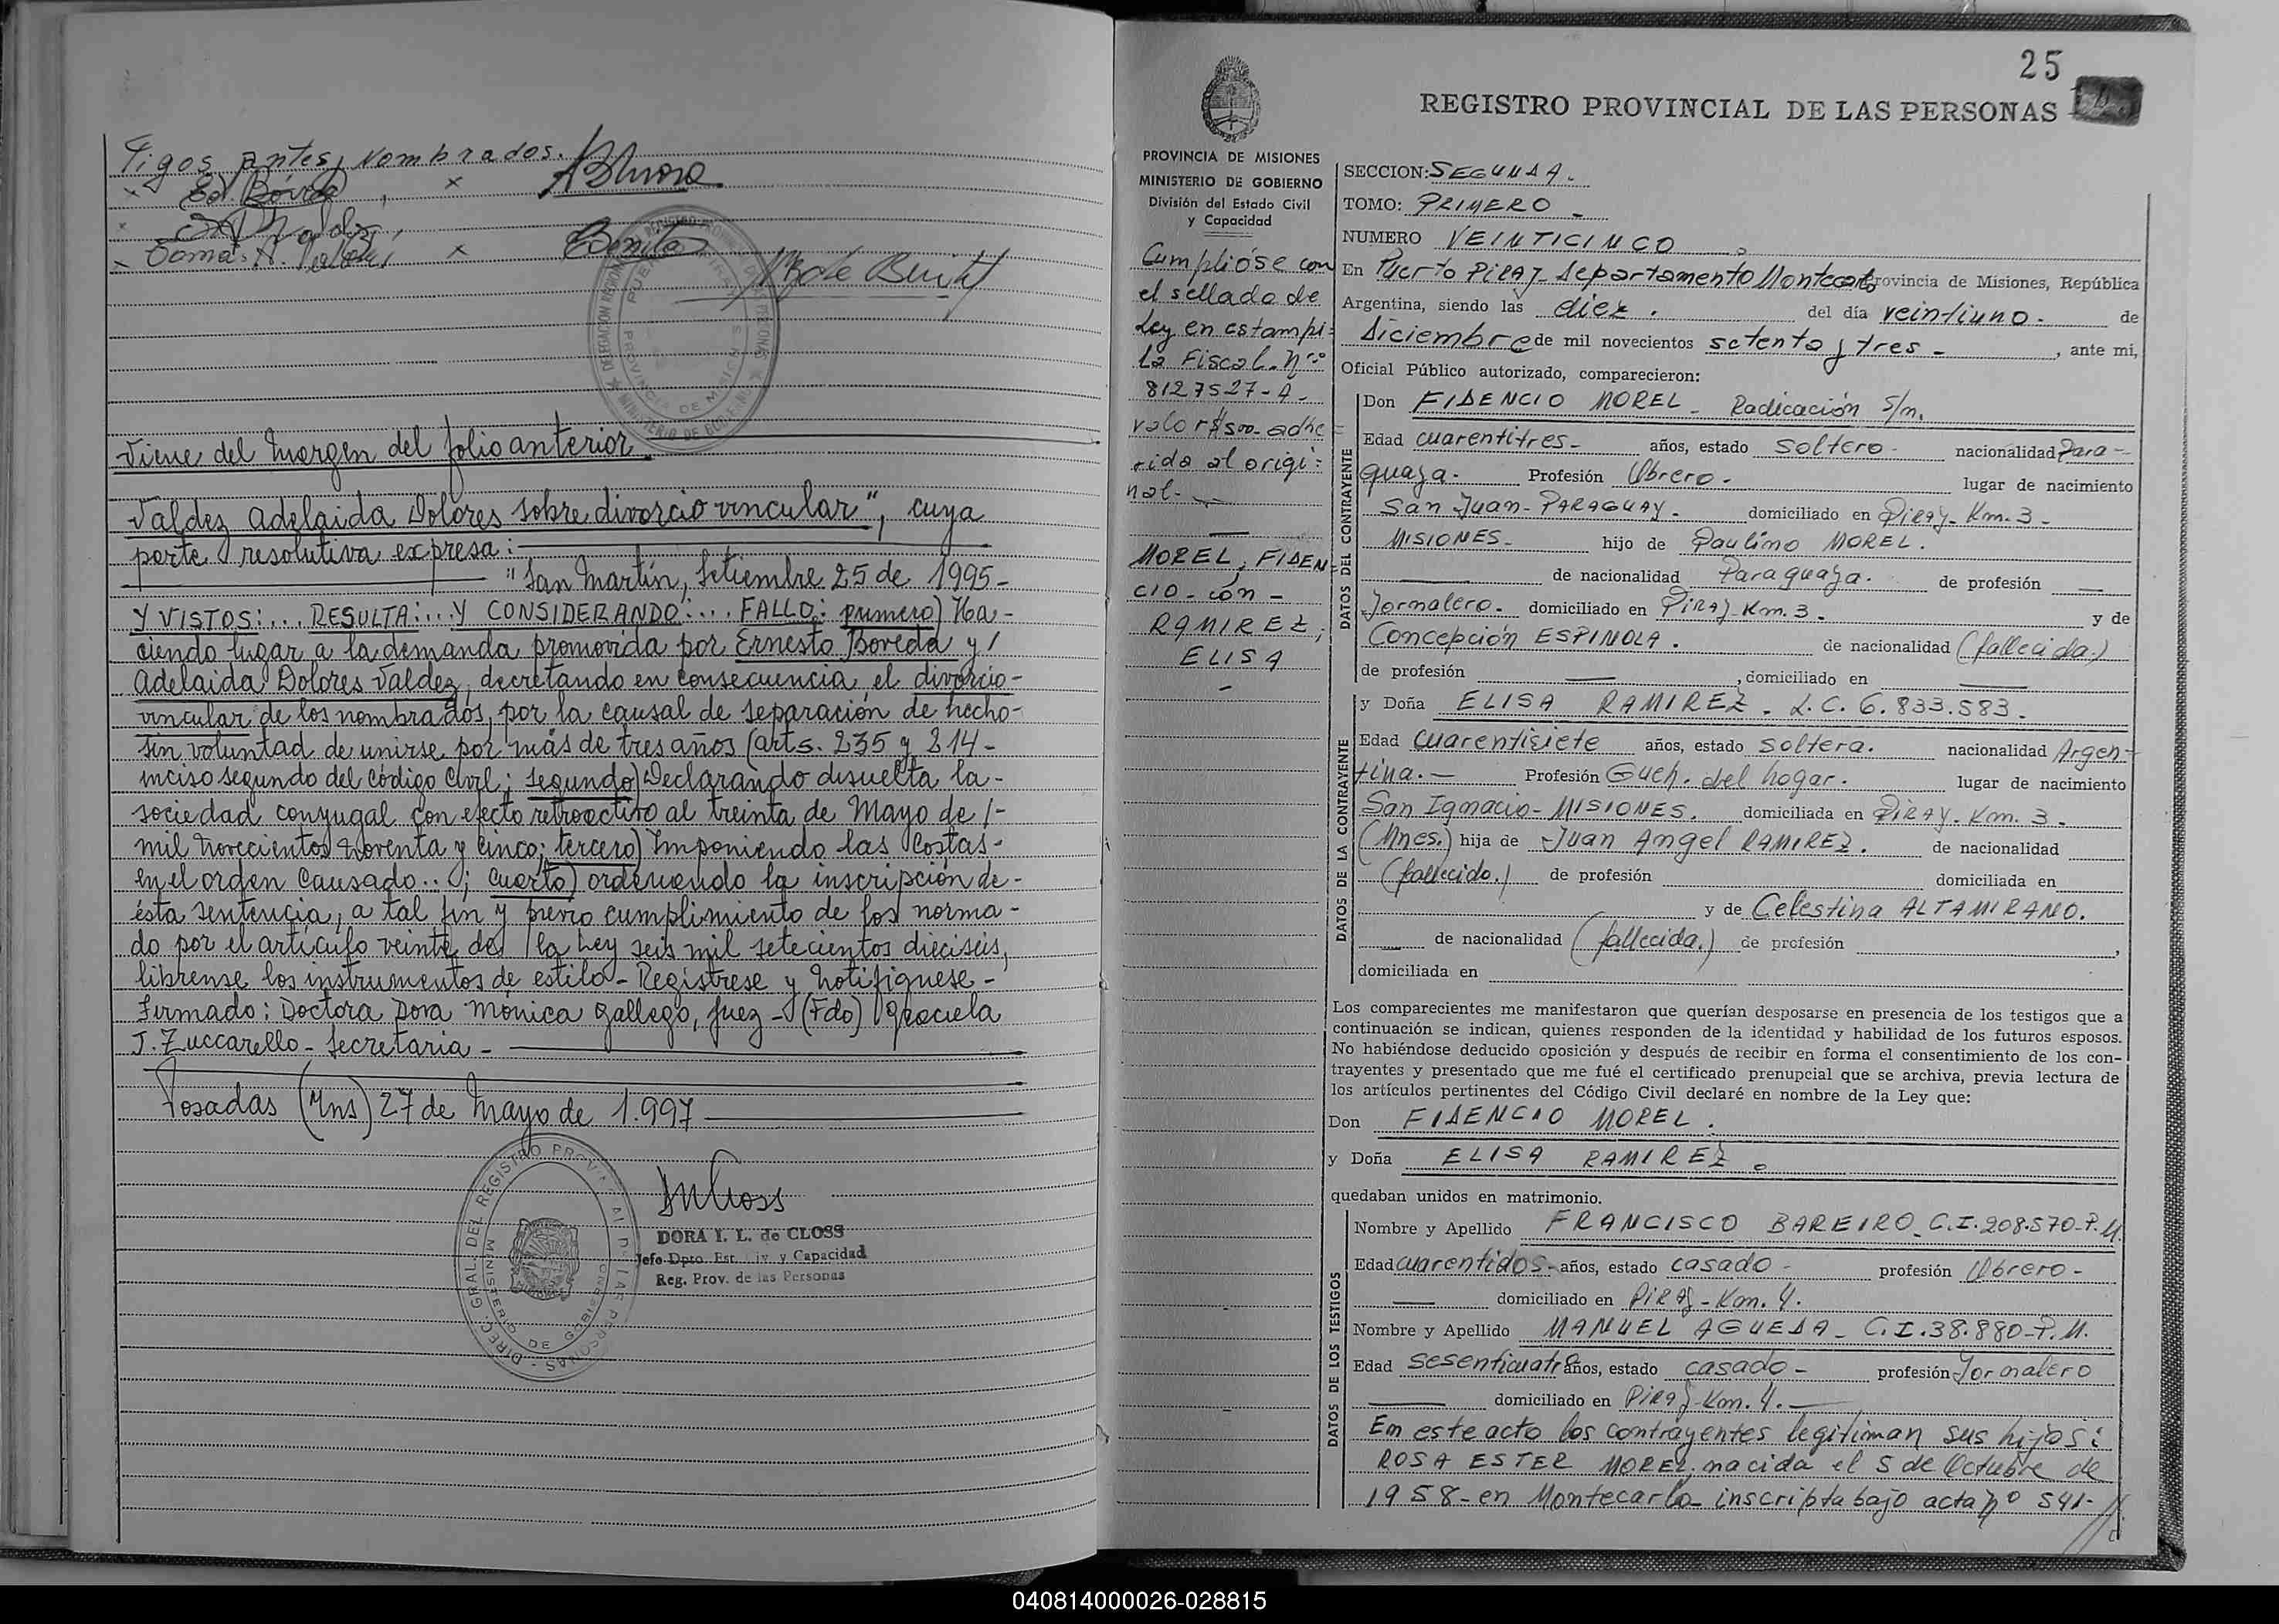 Tigos, antes, Nombrados.
Viene del Margen del folio anterior
Valdez Adelaida Dolores sobre divorcio vincular", cuya
parte resolutiva expresa:
"San Martín, Setiembre 25 de 1995-
Y VISTOS:... RESULTA:... Y CONSIDERANDO:... FALLO: primero) Ha-
ciendo lugar a la demanda promovida por Ernesto Boveda y /
Adelaida Dolores Valdez, decretando en consecuencia el divorcio-
vincular de los nombrados, por la causal de separación de hecho-
sin voluntad de unirse por más de tres años (arts. 235 y 214-
inciso segundo del Código Civil; segundo) Declarando disuelta la-
sociedad conyugal con efecto retroactivo al treinta de Mayo de /-
mil novecientos noventa y cinco; tercero) Imponiendo las Costas-
en el orden Causado...; cuarto) ordenando la inscripción de-
ésta sentencia, a tal fin y previo cumplimiento de los norma-
do por el artículo veinte de la Ley seis mil setecientos dieciséis,
librense los instrumentos de estilo - Regístrese y Notifiquese-
Firmado: Doctora Dora Mónica Gallego, Juez - (Fdo) Graciela
J. Zuccarello - Secretaria -
Posadas (Mns) 27 de Mayo de 1.997
DORA I. L. de CLOSS
Jefe Dpto. Est. Civ. y Capacidad
Reg. Prov. de las Personas
25
REGISTRO PROVINCIAL DE LAS PERSONAS
PROVINCIA DE MISIONES
MINISTERIO DE GOBIERNO
División del Estado Civil
y Capacidad
Cumplióse con
el sellado de
Ley en estampi=
la Fiscal. Nro
8127527-A-
valor $500- adhe=
rida al origi=
nal-
MOREL, FIDEN=
CIO - con -
RAMIREZ,
ELISA
-
SECCION: SEGUNDA.
TOMO: PRIMERO -
NUMERO VEINTICINCO
En Puerto Piray- departamento Montecarlo Provincia de Misiones, República
Argentina, siendo las diez. del día veintiuno- de
Diciembre de mil novecientos setenta y tres - , ante mi,
Oficial Público autorizado, comparecieron:
DATOS DEL CONTRAYENTE
Don FIDENCIO MOREL - Radicación S/n.
Edad cuarentitres- años, estado soltero- nacionalidad Para-
guaya. Profesión Obrero. lugar de nacimiento
San Juan- PARAGUAY. domiciliado en Piray- Km. 3-
MISIONES- hijo de Paulino MOREL.
de nacionalidad Paraguaya. de profesión
Jornalero. domiciliado en Piray-Km. 3. y de
Concepción ESPINOLA. de nacionalidad (fallecida.)
de profesión , domiciliado en
DATOS DE LA CONTRAYENTE
y Doña ELISA RAMIREZ. L.C. 6.833.583.
Edad cuarentisiete años, estado soltera. nacionalidad Argen-
tina.- Profesión Queh. del hogar. lugar de nacimiento
San Ignacio- MISIONES. domiciliada en PIRAY-Km. 3-
(Mnes.) hija de Juan Angel RAMIREZ. de nacionalidad
(fallecido.) de profesión domiciliada en
y de Celestina ALTAMIRANO.
de nacionalidad (fallecida.) de profesión ,
domiciliada en
Los comparecientes me manifestaron que querían desposarse en presencia de los testigos que a
continuación se indican, quienes responden de la identidad y habilidad de los futuros esposos.
No habiéndose deducido oposición y después de recibir en forma el consentimiento de los con-
trayentes y presentado que me fué el certificado prenupcial que se archiva, previa lectura de
los artículos pertinentes del Código Civil declaré en nombre de la Ley que:
Don FIDENCIO MOREL.
y Doña ELISA RAMIREZ.
quedaban unidos en matrimonio.
DATOS DE LOS TESTIGOS
Nombre y Apellido FRANCISCO BAREIRO- C.I. 208.570-P.M.
Edad cuarentidos- años, estado casado- profesión Obrero-
domiciliado en PIRAY-Km. 4.
Nombre y Apellido MANUEL AGUEDA- C.I. 38.880-P.M.
Edad sesenticuatro años, estado casado- profesión Jornalero
domiciliado en PIRAY-Km. 4.-
En este acto los contrayentes legitiman sus hijos:
ROSA ESTER MOREL, nacida el 5 de Octubre de
1958- en Montecarlo- inscripta bajo acta nº 541-//
040814000026-028815